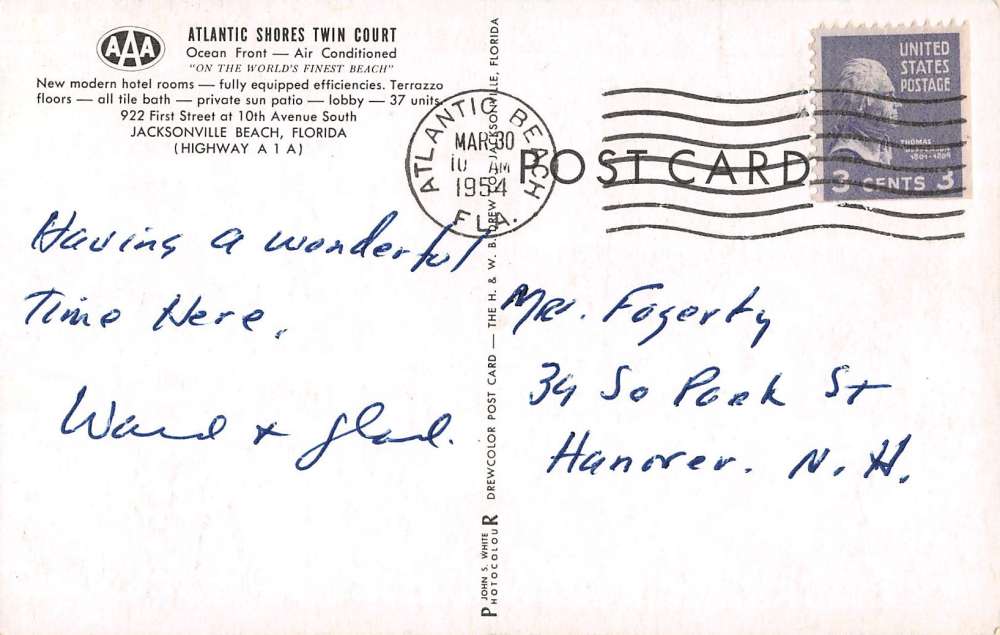 AAA
ATLANTIC SHORES TWIN COURT
Ocean Front — Air Conditioned
"ON THE WORLD'S FINEST BEACH"
New modern hotel rooms — fully equipped efficiencies. Terrazzo
floors — all tile bath — private sun patio — lobby — 37 units.
922 First Street at 10th Avenue South
JACKSONVILLE BEACH, FLORIDA
(HIGHWAY A 1 A)
Having a wonderful
Time Here.
Ward + Glad.
PHOTOCOLOUR
JOHN S. WHITE
DREWCOLOR POST CARD — THE H. & W. B. DREW CO., JACKSONVILLE, FLORIDA
ATLANTIC BEACH
MAR 30
10 AM
1954
FLA.
POST CARD
UNITED
STATES
POSTAGE
THOMAS
JEFFERSON
1801-1809
3 CENTS 3
Mr. Fogerty
34 So Park St
Hanover. N. H.